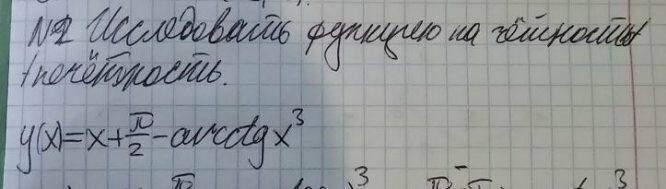 №2 Исследовать функцию на чётность
/нечётность.
y(x)=x+π/2-arcctg x³